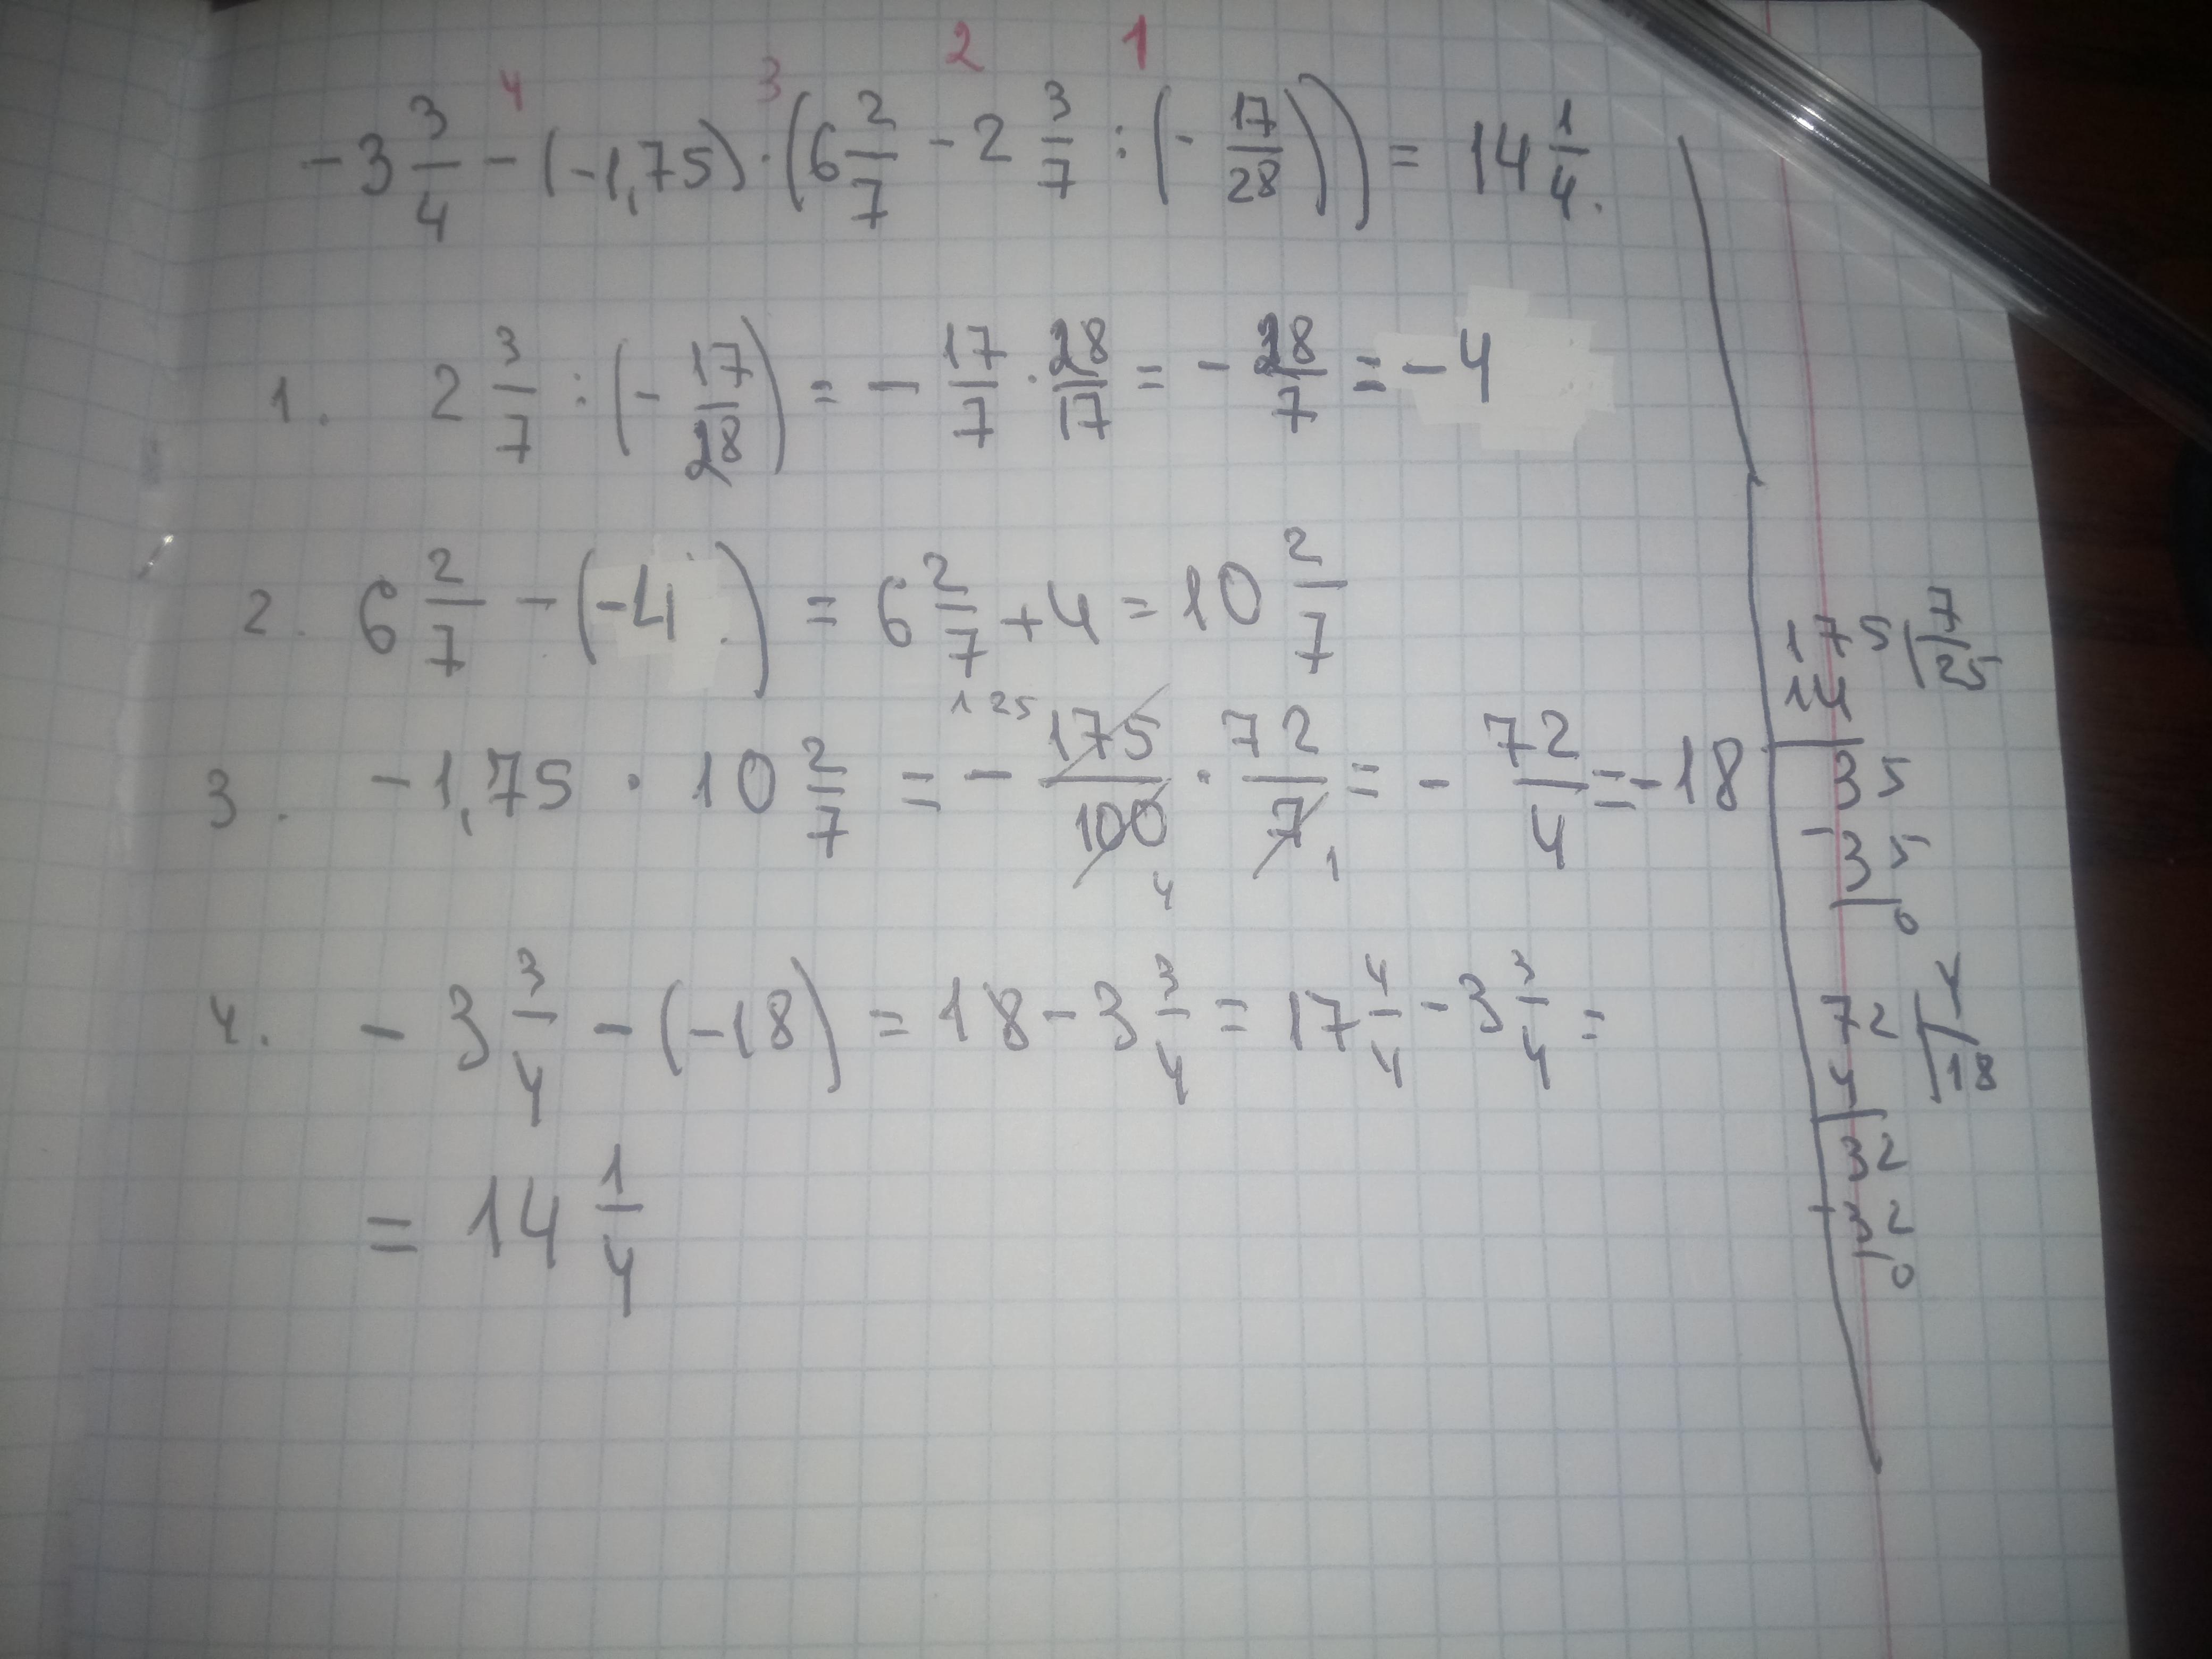 4 3 2 1
-3 3/4 - (-1,75) · (6 2/7 - 2 3/7 : (- 17/28)) = 14 1/4.
1. 2 3/7 : (- 17/28) = - 17/7 · 28/17 = - 28/7 = -4
2. 6 2/7 - (-4) = 6 2/7 + 4 = 10 2/7
1 25
3. -1,75 · 10 2/7 = - 175/100 · 72/7 = - 72/4 = -18
4 1
4. - 3 3/4 - (-18) = 18 - 3 3/4 = 17 4/4 - 3 3/4 =
= 14 1/4
175 7
14 25
35
-35
0
72 4
4 18
32
-32
0